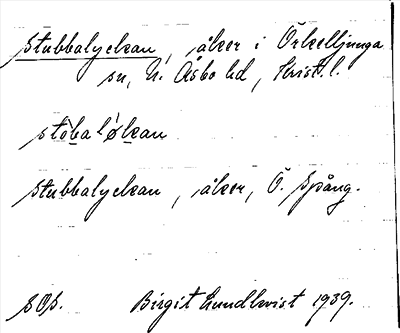 Stubbalyckan, åker i Örkelljunga
sn, N. Åsbo hd, Krist. l.
stòbalỳkan
Stubbalyckan, åker, Ö. Spång.
SOP. Birgit Lundkvist 1939.